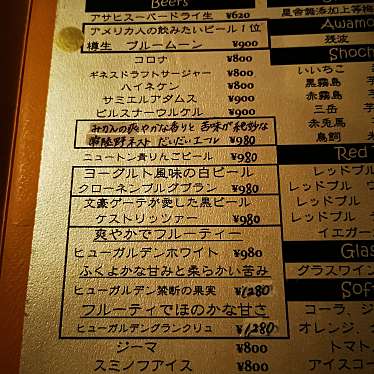 Beers
アサヒスーパードライ生 ¥620
アメリカ人の飲みたいビール1位
樽生 ブルームーン ¥900
コロナ ¥800
ギネスドラフトサージャー ¥800
ハイネケン ¥800
サミエルアダムス ¥900
ピルスナーウルケル ¥900
みかんの爽やかな香りと 苦味が絶妙な
常陸野ネスト だいだいエール ¥980
ニュートン青りんごビール ¥980
ヨーグルト風味の白ビール
クローネンブルグブラン ¥980
文豪ゲーテが愛した黒ビール
ケストリッツァー ¥980
爽やかでフルーティー
ヒューガルデンホワイト ¥980
ふくよかな甘みと柔らかい苦み
ヒューガルデン禁断の果実 ¥1,280
フルーティでほのかな甘さ
ヒューガルデングランクリュ ¥1,280
ジーマ ¥800
スミノフアイス ¥800
黒舎醸添加上等梅
Awamo
残波
Shoch
いいちこ
黒霧島
赤霧島
三岳
赤兎馬
鳥飼
Red
レッドブル
レッドブル ウ
レッドブル
イエガー
Glas
グラスワイン
Sof
コーラ、ジ
オレンジ、
トマト
アイスコー